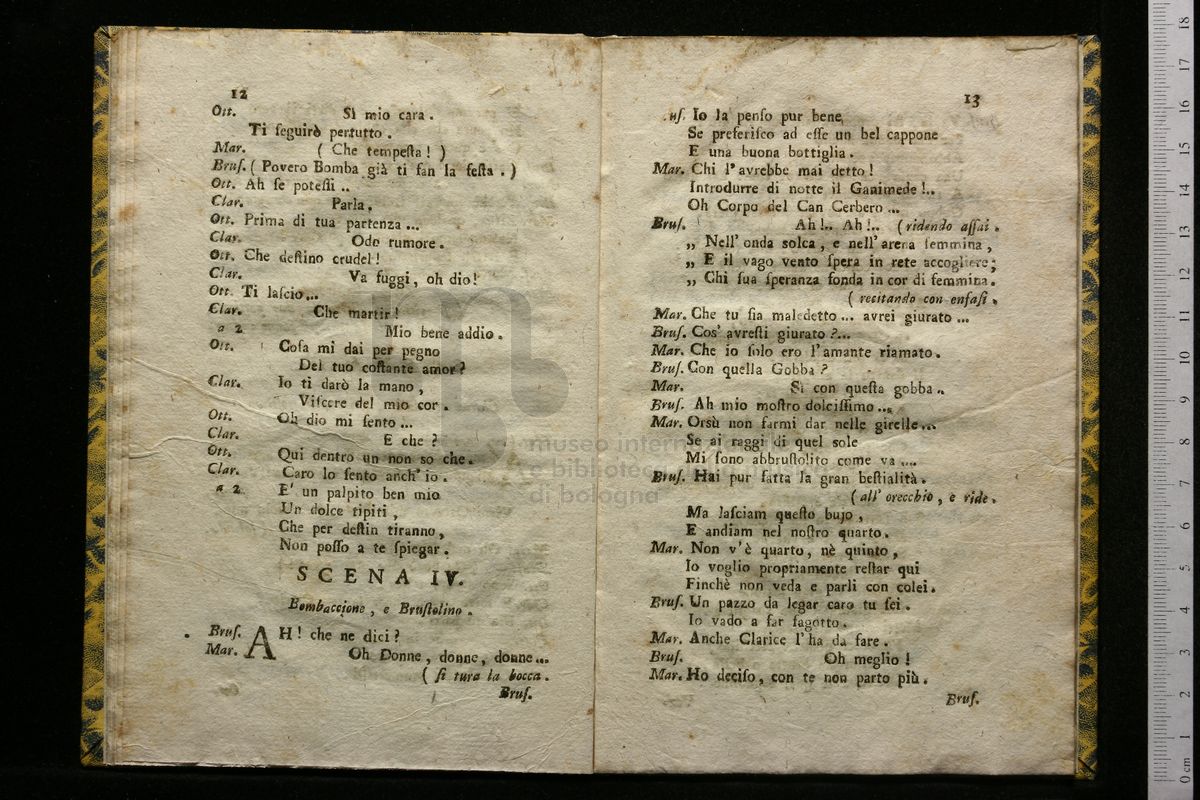 12
Ott. Sì mio cara.
Ti ſeguirò pertutto.
Mar. ( Che tempeſta! )
Bruſ. ( Povero Bomba già ti fan la feſta. )
Ott. Ah ſe poteſſi ..
Clar. Parla,
Ott. Prima di tua partenza...
Clar. Odo rumore.
Ott. Che deſtino crudel!
Clar. Va fuggi, oh dio!
Ott. Ti laſcio...
Clar. Che martir!
a 2 Mio bene addio.
Ott. Coſa mi dai per pegno
Del tuo coſtante amor?
Clar. Io ti darò la mano,
Viſcere del mio cor.
Ott. Oh dio mi ſento...
Clar. E che?
Ott. Qui dentro un non so che.
Clar. Caro lo ſento anch' io.
a 2 E' un palpito ben mio
Un dolce tipiti,
Che per deſtin tiranno,
Non poſſo a te ſpiegar.
SCENA IV.
Bombaccione, e Bruſtolino.
Bruſ. AH! che ne dici?
Mar. Oh Donne, donne, donne...
( ſi tura la bocca.
Bruſ.
13
uſ. Io la penſo pur bene,
Se preferiſco ad eſſe un bel cappone
E una buona bottiglia.
Mar. Chi l'avrebbe mai detto!
Introdurre di notte il Ganimede!..
Oh Corpo del Can Cerbero ...
Bruſ. Ah!.. Ah!.. (ridendo aſſai.
„ Nell' onda solca, e nell' arena ſemmina,
„ E il vago vento ſpera in rete accogliere;
„ Chi ſua ſperanza fonda in cor di femmina.
( recitando con enfaſi.
Mar. Che tu ſia maledetto ... avrei giurato ...
Bruſ. Cos' avreſti giurato?...
Mar. Che io ſolo ero l'amante riamato.
Bruſ. Con quella Gobba?
Mar. Sì con queſta gobba..
Bruſ. Ah mio moſtro dolciſſimo...
Mar. Orsù non farmi dar nelle girelle...
Se ai raggi di quel sole
Mi ſono abbruſtolito come va ....
Bruſ. Hai pur fatta la gran beſtialità.
( all' orecchio, e ride.
Ma laſciam queſto bujo,
E andiam nel noſtro quarto.
Mar. Non v'è quarto, nè quinto,
Io voglio propriamente reſtar qui
Finchè non veda e parli con colei.
Bruſ. Un pazzo da legar caro tu ſei.
Io vado a far fagotto.
Mar. Anche Clarice l'ha da fare.
Bruſ. Oh meglio!
Mar. Ho deciſo, con te non parto più.
Bruſ.
museo intern
e bibliote
di bologna
0 cm 1 2 3 4 5 6 7 8 9 10 11 12 13 14 15 16 17 18